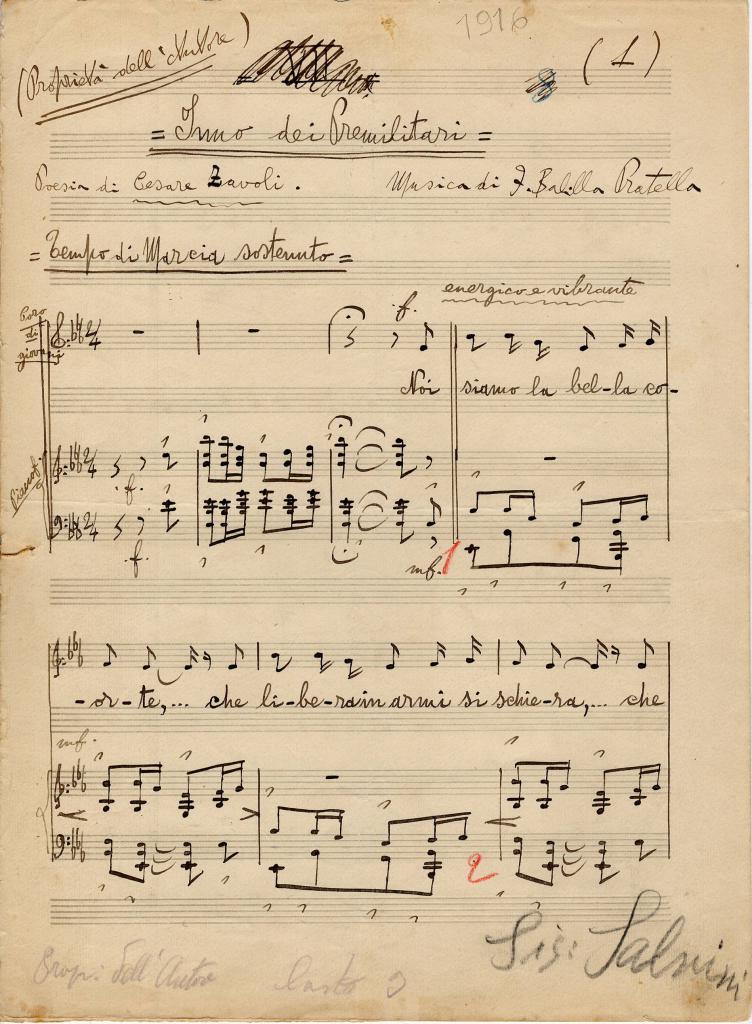 1916
(Proprietà dell'Autore)
(1)
= Inno dei Premilitari =
Poesia di Cesare Zavoli.
Musica di F. Balilla Pratella
= Tempo di Marcia sostenuto =
energico e vibrante
Coro
di
giovani
f.
2/4
Noi siamo la bel-la co-
Pianof.
2/4
f.
2/4
f.
mf.
1
-or-te,... che li-be-rain armi si schie-ra,... che
mf.
2
Prop: dell'Autore
Sig: Salvini